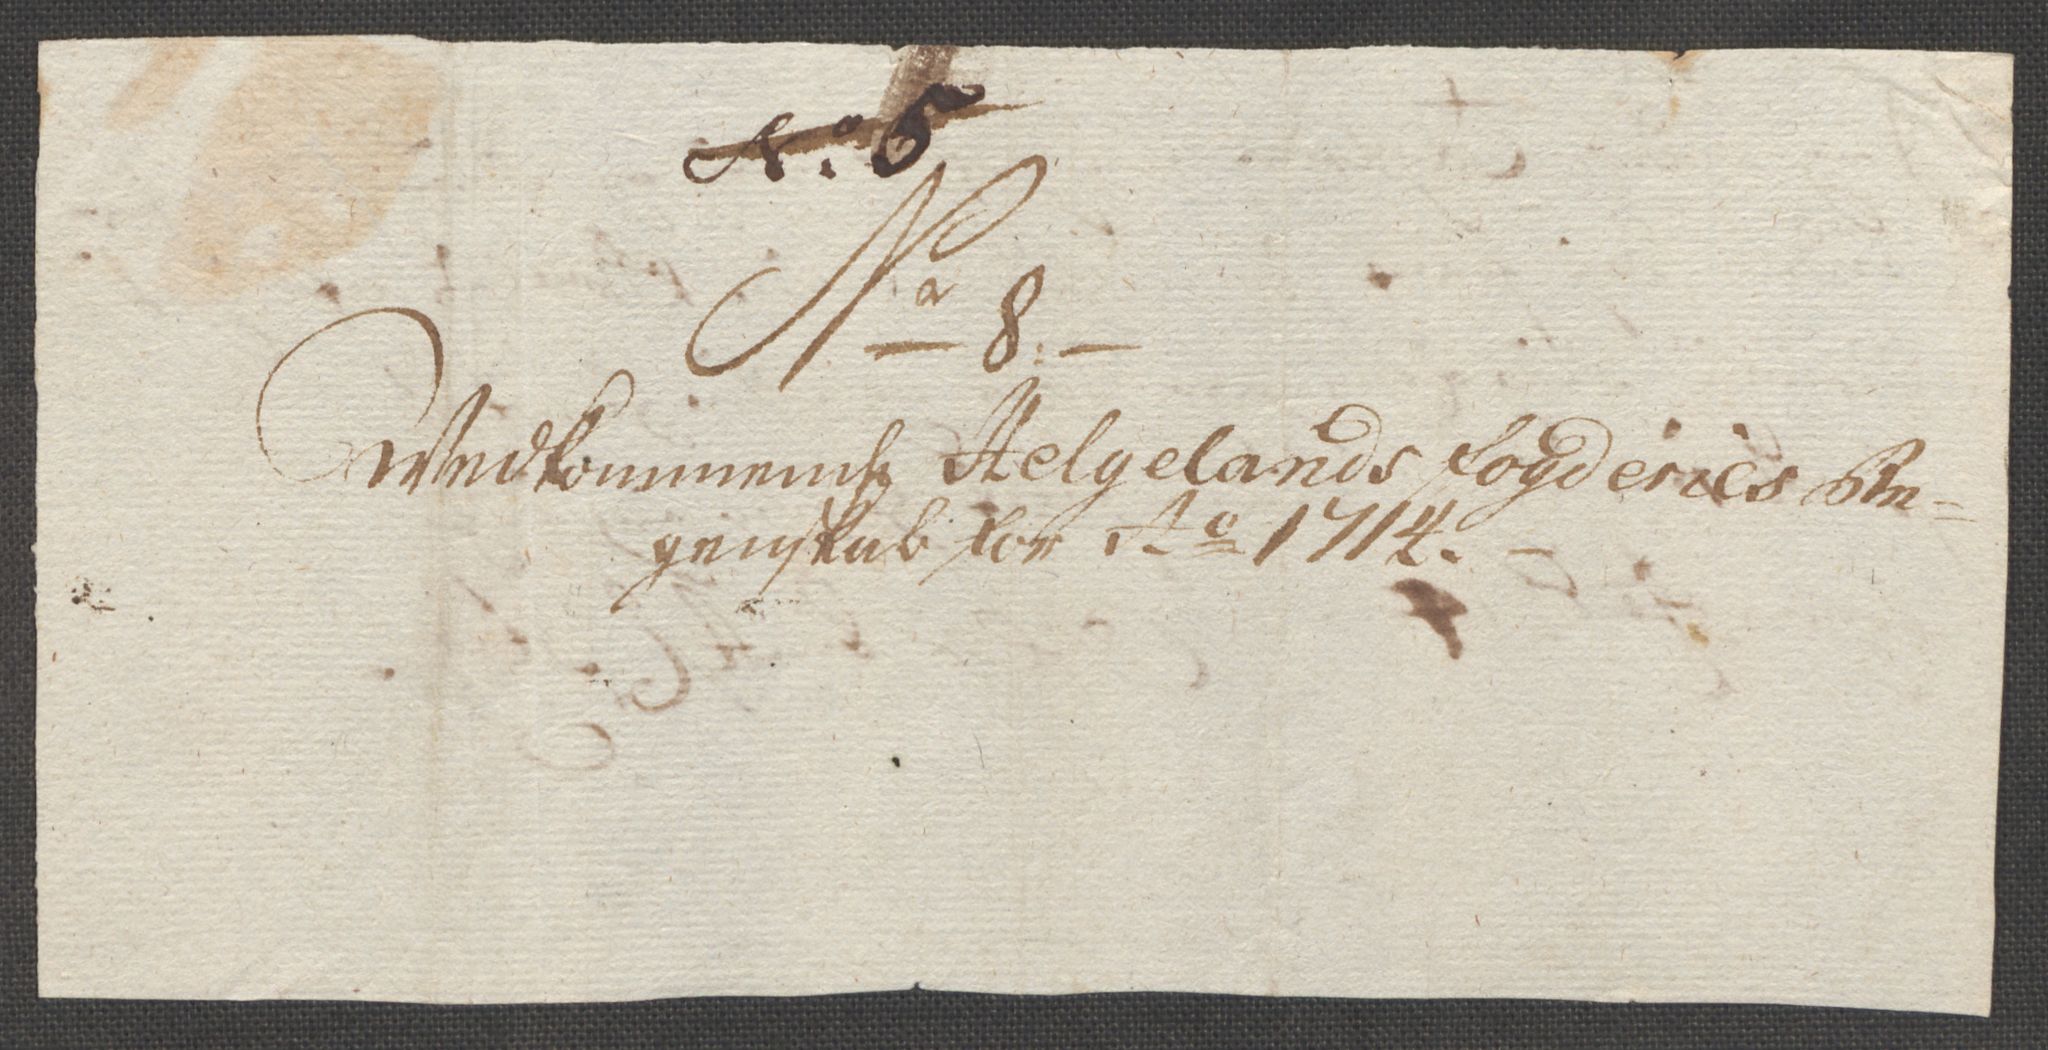 No: 6
No 8:
Vedkommende Helgelands fogderies Re=
genskab for Ao 1714.